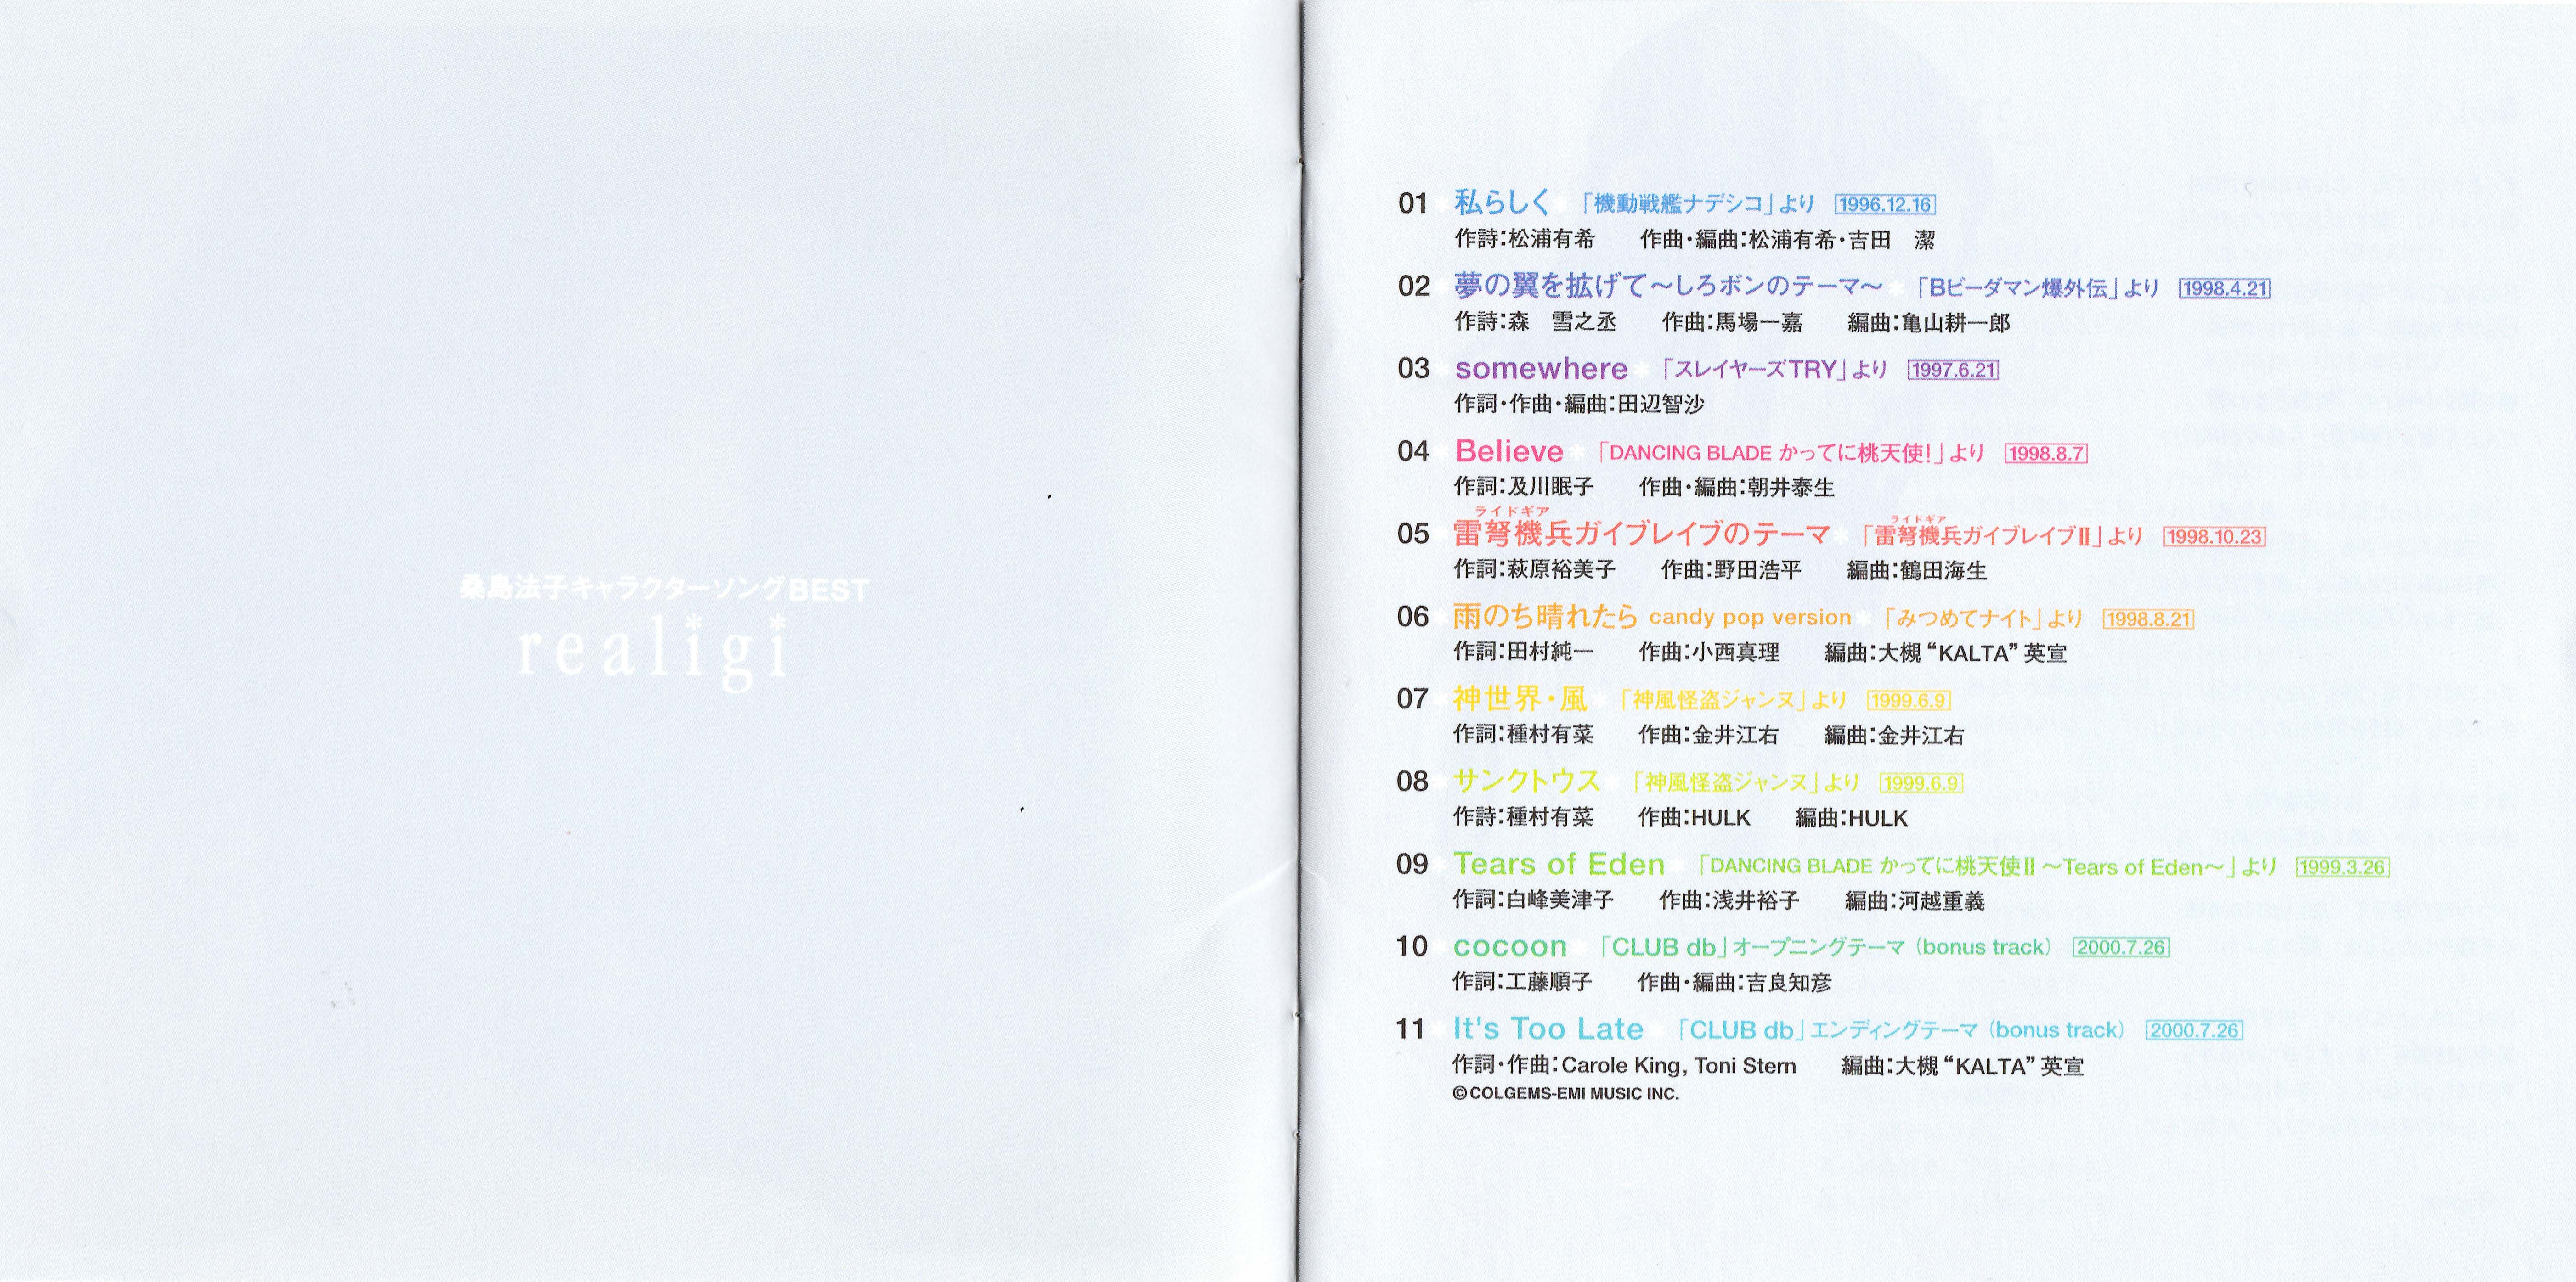 桑島法子キャラクターソングBEST
realigi
01 私らしく* 「機動戦艦ナデシコ」より 1996.12.16
作詩:松浦有希 作曲・編曲:松浦有希・吉田 潔
02 夢の翼を拡げて〜しろボンのテーマ〜* 「Bビーダマン爆外伝」より 1998.4.21
作詩:森 雪之丞 作曲:馬場一嘉 編曲:亀山耕一郎
03 somewhere* 「スレイヤーズTRY」より 1997.6.21
作詞・作曲・編曲:田辺智沙
04 Believe* 「DANCING BLADE かってに桃天使!」より 1998.8.7
作詞:及川眠子 作曲・編曲:朝井泰生
ライドギア ライドギア
05 雷弩機兵ガイブレイブのテーマ* 「雷弩機兵ガイブレイブII」より 1998.10.23
作詞:萩原裕美子 作曲:野田浩平 編曲:鶴田海生
06 雨のち晴れたら candy pop version* 「みつめてナイト」より 1998.8.21
作詞:田村純一 作曲:小西真理 編曲:大槻“KALTA”英宣
07 神世界・風* 「神風怪盗ジャンヌ」より 1999.6.9
作詞:種村有菜 作曲:金井江右 編曲:金井江右
08 サンクトゥス* 「神風怪盗ジャンヌ」より 1999.6.9
作詩:種村有菜 作曲:HULK 編曲:HULK
09 Tears of Eden* 「DANCING BLADE かってに桃天使II 〜Tears of Eden〜」より 1999.3.26
作詞:白峰美津子 作曲:浅井裕子 編曲:河越重義
10 cocoon* 「CLUB db」オープニングテーマ(bonus track) 2000.7.26
作詞:工藤順子 作曲・編曲:吉良知彦
11 It's Too Late* 「CLUB db」エンディングテーマ(bonus track) 2000.7.26
作詞・作曲:Carole King, Toni Stern 編曲:大槻“KALTA”英宣
©COLGEMS-EMI MUSIC INC.